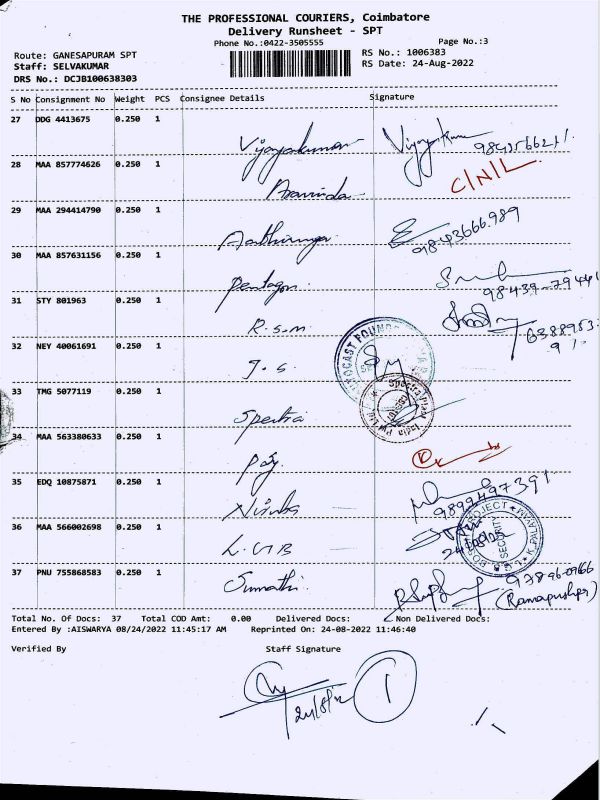 THE PROFESSIONAL COURIERS, Coimbatore
Delivery Runsheet - SPT
Phone No.:0422-3505555
Page No.:3
Route: GANESAPURAM SPT
RS No.: 1006383
Staff: SELVAKUMAR
RS Date: 24-Aug-2022
DRS No.: DCJB100638303
S No Consignment No Weight PCS Consignee Details Signature
27 DDG 4413675 0.250 1
Vijayakumar Vijayakumar
28 MAA 857774626 0.250 1
Aravinda C/N/L
29 MAA 294414790 0.250 1
9843666989
30 MAA 857631156 0.250 1
Pentagon 98439-79441
31 STY 801963 0.250 1
R.s.m.
32 NEY 40061691 0.250 1
J.S.
33 TMG 5077119 0.250 1
Spectra Spectra Plast India Pvt Ltd
34 MAA 563380633 0.250 1
35 EDQ 10875871 0.250 1
9899497391
36 MAA 566002698 0.250 1
L.G.B SECURITY
37 PNU 755868583 0.250 1
Sumathi
Total No. Of Docs: 37 Total COD Amt: 0.00 Delivered Docs: Non Delivered Docs:
Entered By :AISWARYA 08/24/2022 11:45:17 AM Reprinted On: 24-08-2022 11:46:40
Verified By Staff Signature
1